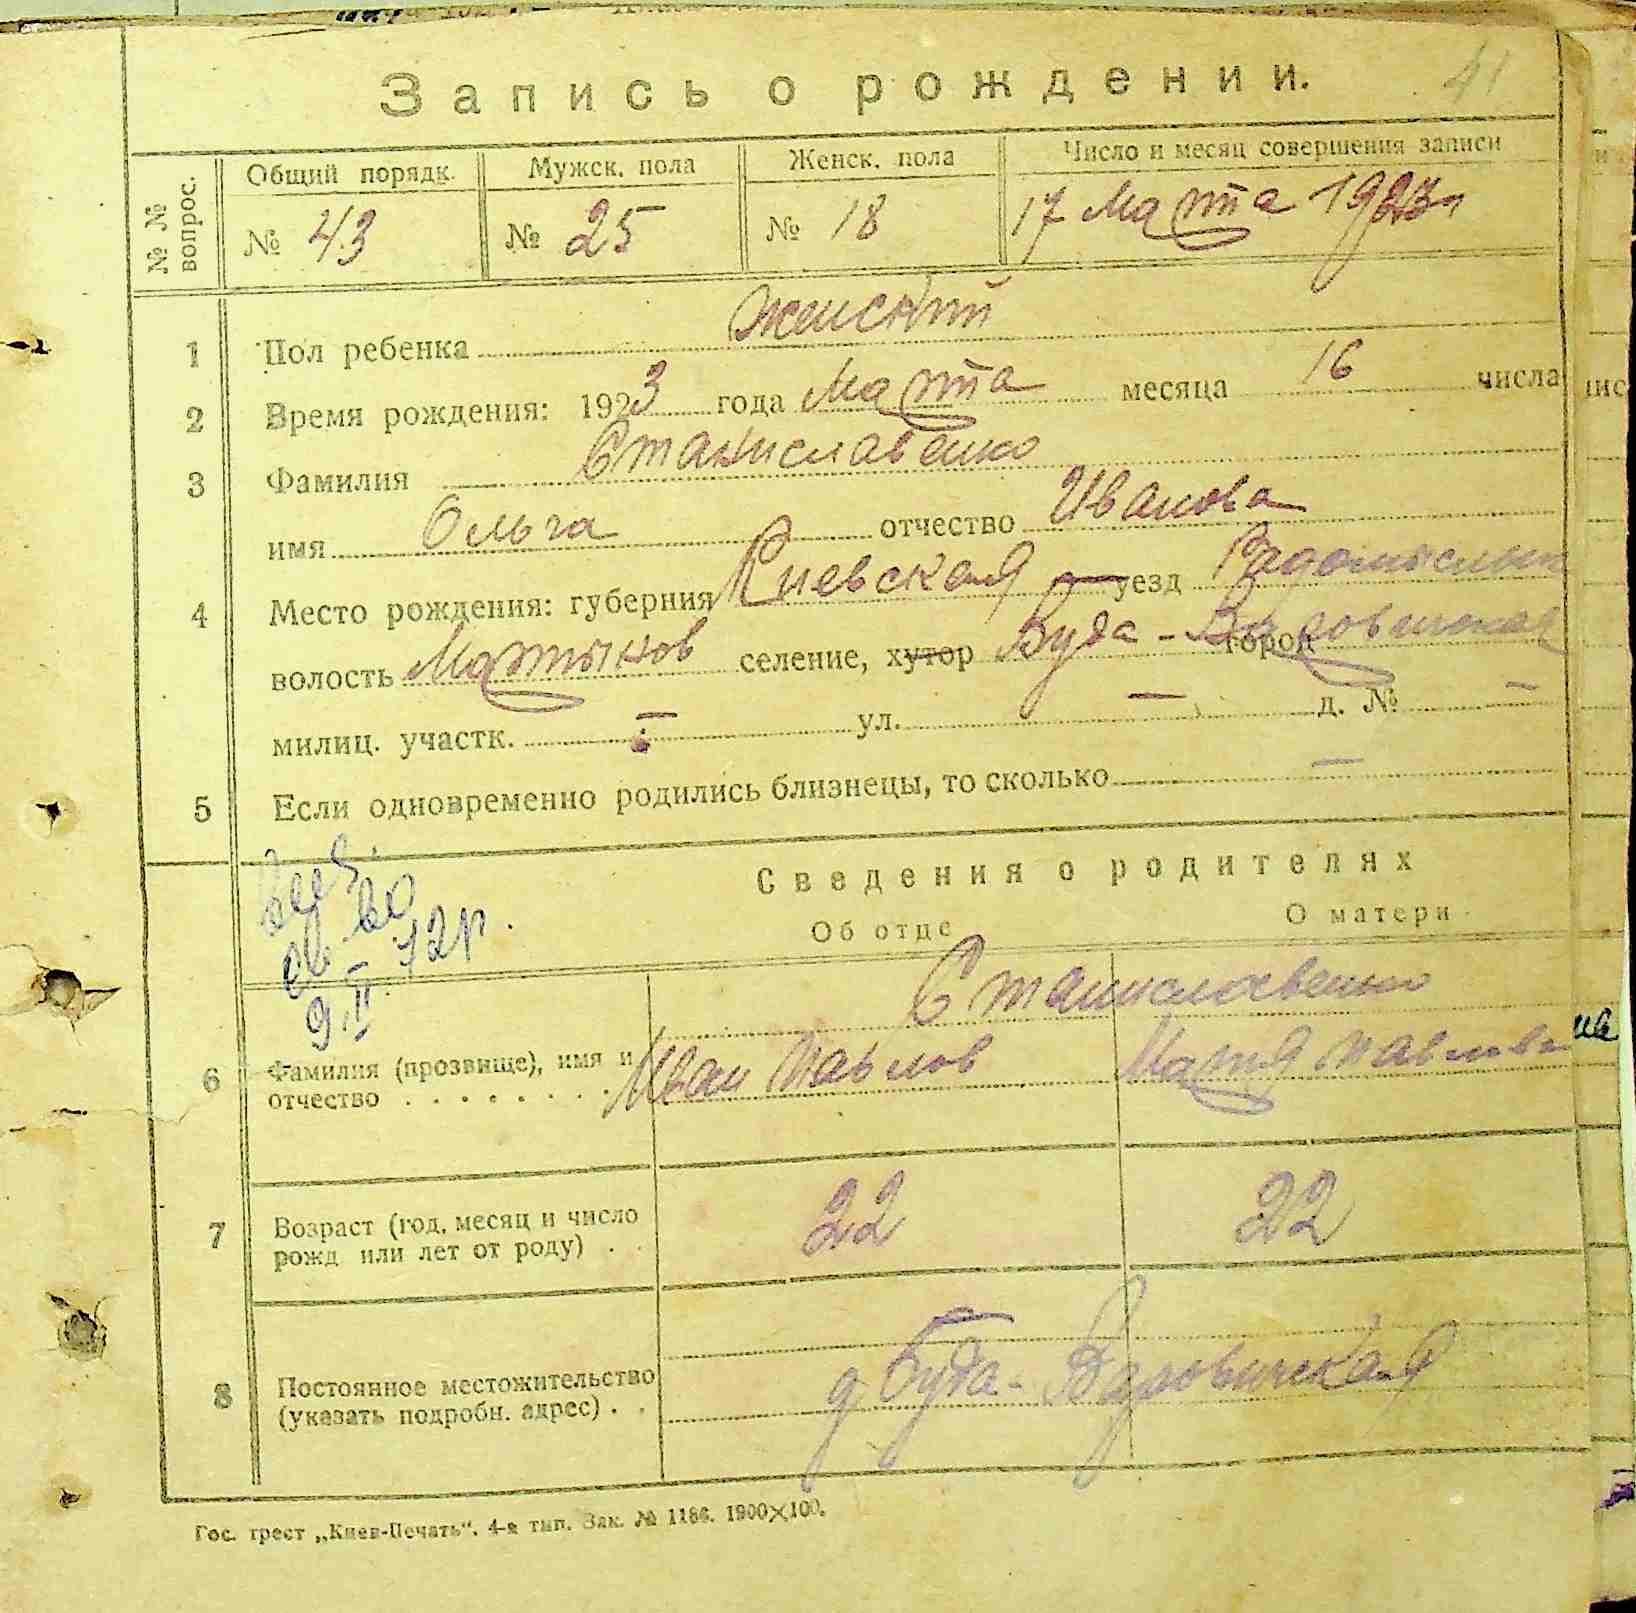 41
Запись о рождении.
№ № вопрос.
Общий порядк. № 43
Мужск. пола № 25
Женск. пола № 18
Число и месяц совершения записи 17 Марта 1923 г
1 Пол ребенка Женский
2 Время рождения: 1923 года Марта месяца 16 числа
3 Фамилия Станиславенко
имя Ольга отчество Иванова
4 Место рождения: губерния Киевская уезд Радомысльск
волость Мартынов селение, хутор Буда-Варовичская город
милиц. участк. — ул. — д. № —
5 Если одновременно родились близнецы, то сколько —
Сведения о родителях
Об отце О матери
9.II 72р.
Станиславенко
6 Фамилия (прозвище), имя и Иван Павлов Мария Павловна
отчество . . . . . . . .
7 Возраст (год, месяц и число 22 22
рожд или лет от роду) . .
8 Постоянное местожительство д Буда-Варовичская
(указать подробн. адрес) . .
Гос. трест „Киев-Печать“. 4-я тип. Зак. № 1186. 1900×100.